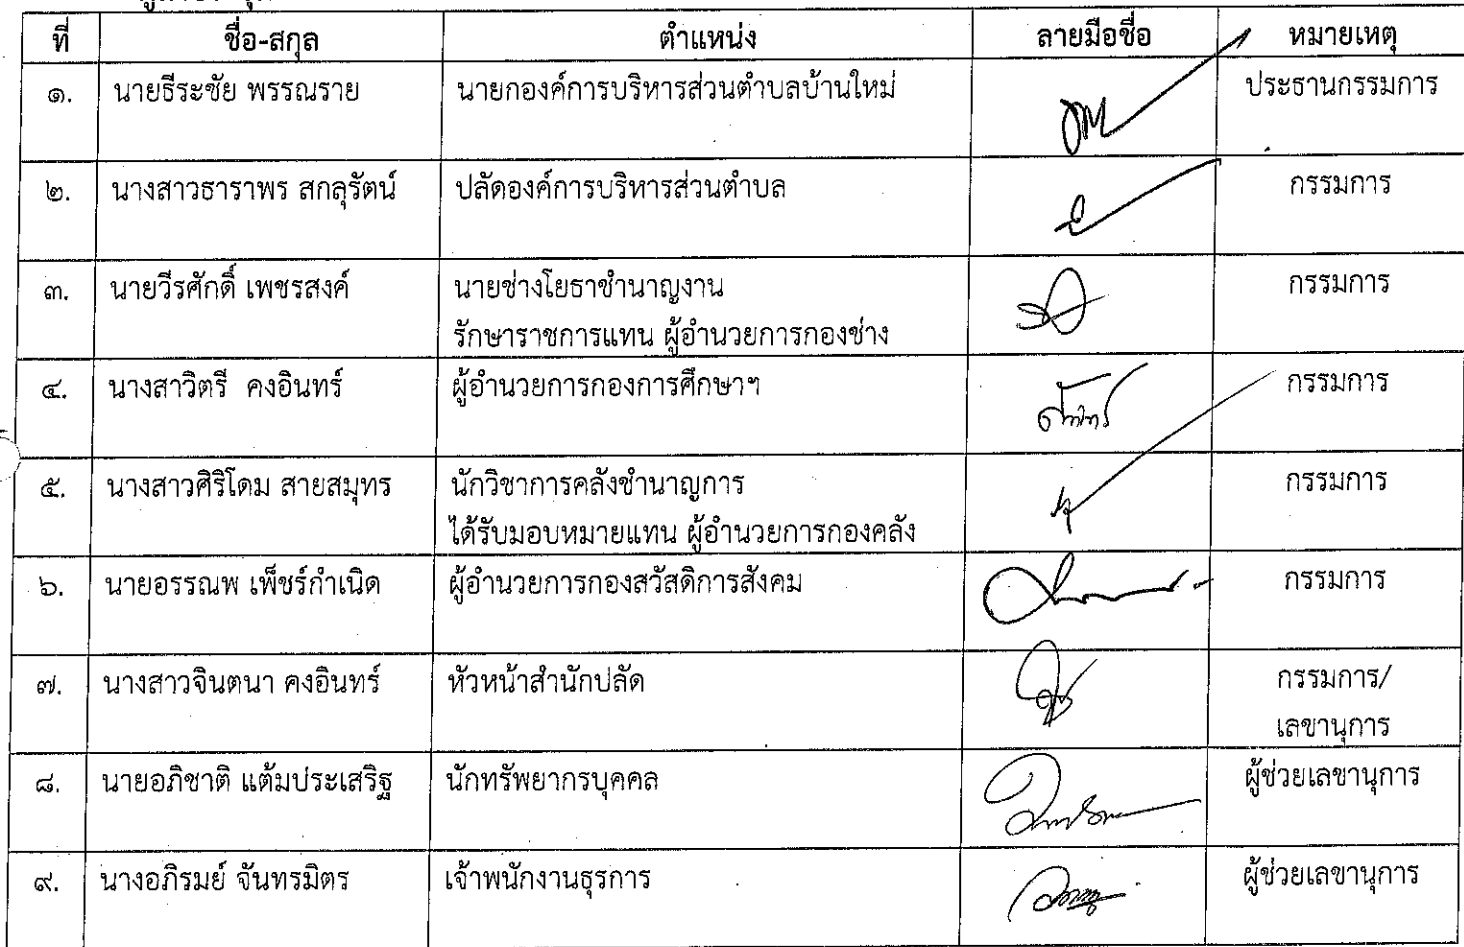 ที่ ชื่อ-สกุล ตำแหน่ง ลายมือชื่อ หมายเหตุ
๑. นายธีระชัย พรรณราย นายกองค์การบริหารส่วนตำบลบ้านใหม่ ประธานกรรมการ
๒. นางสาวธาราพร สกลุรัตน์ ปลัดองค์การบริหารส่วนตำบล กรรมการ
๓. นายวีรศักดิ์ เพชรสงค์ นายช่างโยธาชำนาญงาน กรรมการ
รักษาราชการแทน ผู้อำนวยการกองช่าง
๔. นางสาวิตรี คงอินทร์ ผู้อำนวยการกองการศึกษาฯ กรรมการ
๕. นางสาวศิริโดม สายสมุทร นักวิชาการคลังชำนาญการ กรรมการ
ได้รับมอบหมายแทน ผู้อำนวยการกองคลัง
๖. นายอรรณพ เพ็ชร์กำเนิด ผู้อำนวยการกองสวัสดิการสังคม กรรมการ
๗. นางสาวจินตนา คงอินทร์ หัวหน้าสำนักปลัด กรรมการ/
เลขานุการ
๘. นายอภิชาติ แต้มประเสริฐ นักทรัพยากรบุคคล ผู้ช่วยเลขานุการ
๙. นางอภิรมย์ จันทรมิตร เจ้าพนักงานธุรการ ผู้ช่วยเลขานุการ